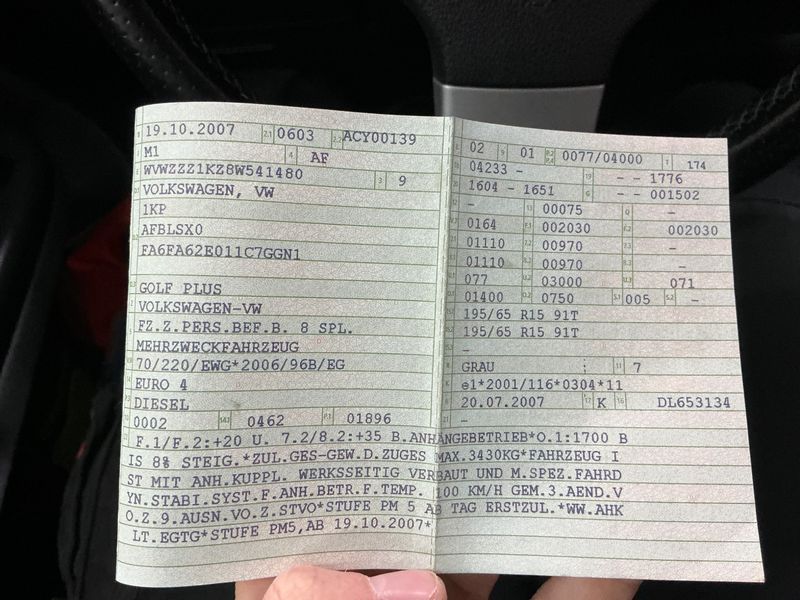 19.10.2007 0603 ACY00139
M1 AF
WVWZZZ1KZ8W541480 9
VOLKSWAGEN, VW
1KP
AFBLSX0
FA6FA62E011C7GGN1
GOLF PLUS
VOLKSWAGEN-VW
FZ.Z.PERS.BEF.B. 8 SPL.
MEHRZWECKFAHRZEUG
70/220/EWG*2006/96B/EG
EURO 4
DIESEL
0002 0462 01896
02 01 0077/04000 174
04233 - - - 1776
1604 - 1651 - - 001502
- 00075 -
0164 002030 002030
01110 00970 -
01110 00970 -
077 03000 071
01400 0750 005 -
195/65 R15 91T
195/65 R15 91T
-
GRAU 7
e1*2001/116*0304*11
20.07.2007 K DL653134
-
F.1/F.2:+20 U. 7.2/8.2:+35 B.ANHÄNGEBETRIEB*O.1:1700 B
IS 8% STEIG.*ZUL.GES-GEW.D.ZUGES MAX.3430KG*FAHRZEUG I
ST MIT ANH.KUPPL. WERKSSEITIG VERBAUT UND M.SPEZ.FAHRD
YN.STABI.SYST.F.ANH.BETR.F.TEMP. 100 KM/H GEM.3.AEND.V
O.Z.9.AUSN.VO.Z.STVO*STUFE PM 5 AB TAG ERSTZUL.*WW.AHK
LT.EGTG*STUFE PM5,AB 19.10.2007*